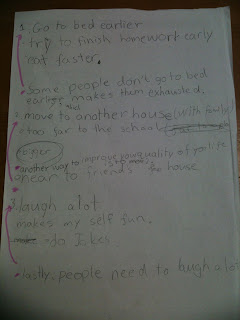 1. Go to bed earlier
- try to finish homework early
eat faster.
. Some people don't go to bed
earlier makes them exhausted.
2. move to another house (with family)
- too far to the school
another way to improve your quality of your life
near to friends house.
3. laugh a lot
makes my self fun.
to Jokes.
. lastly, people need to laugh a lot